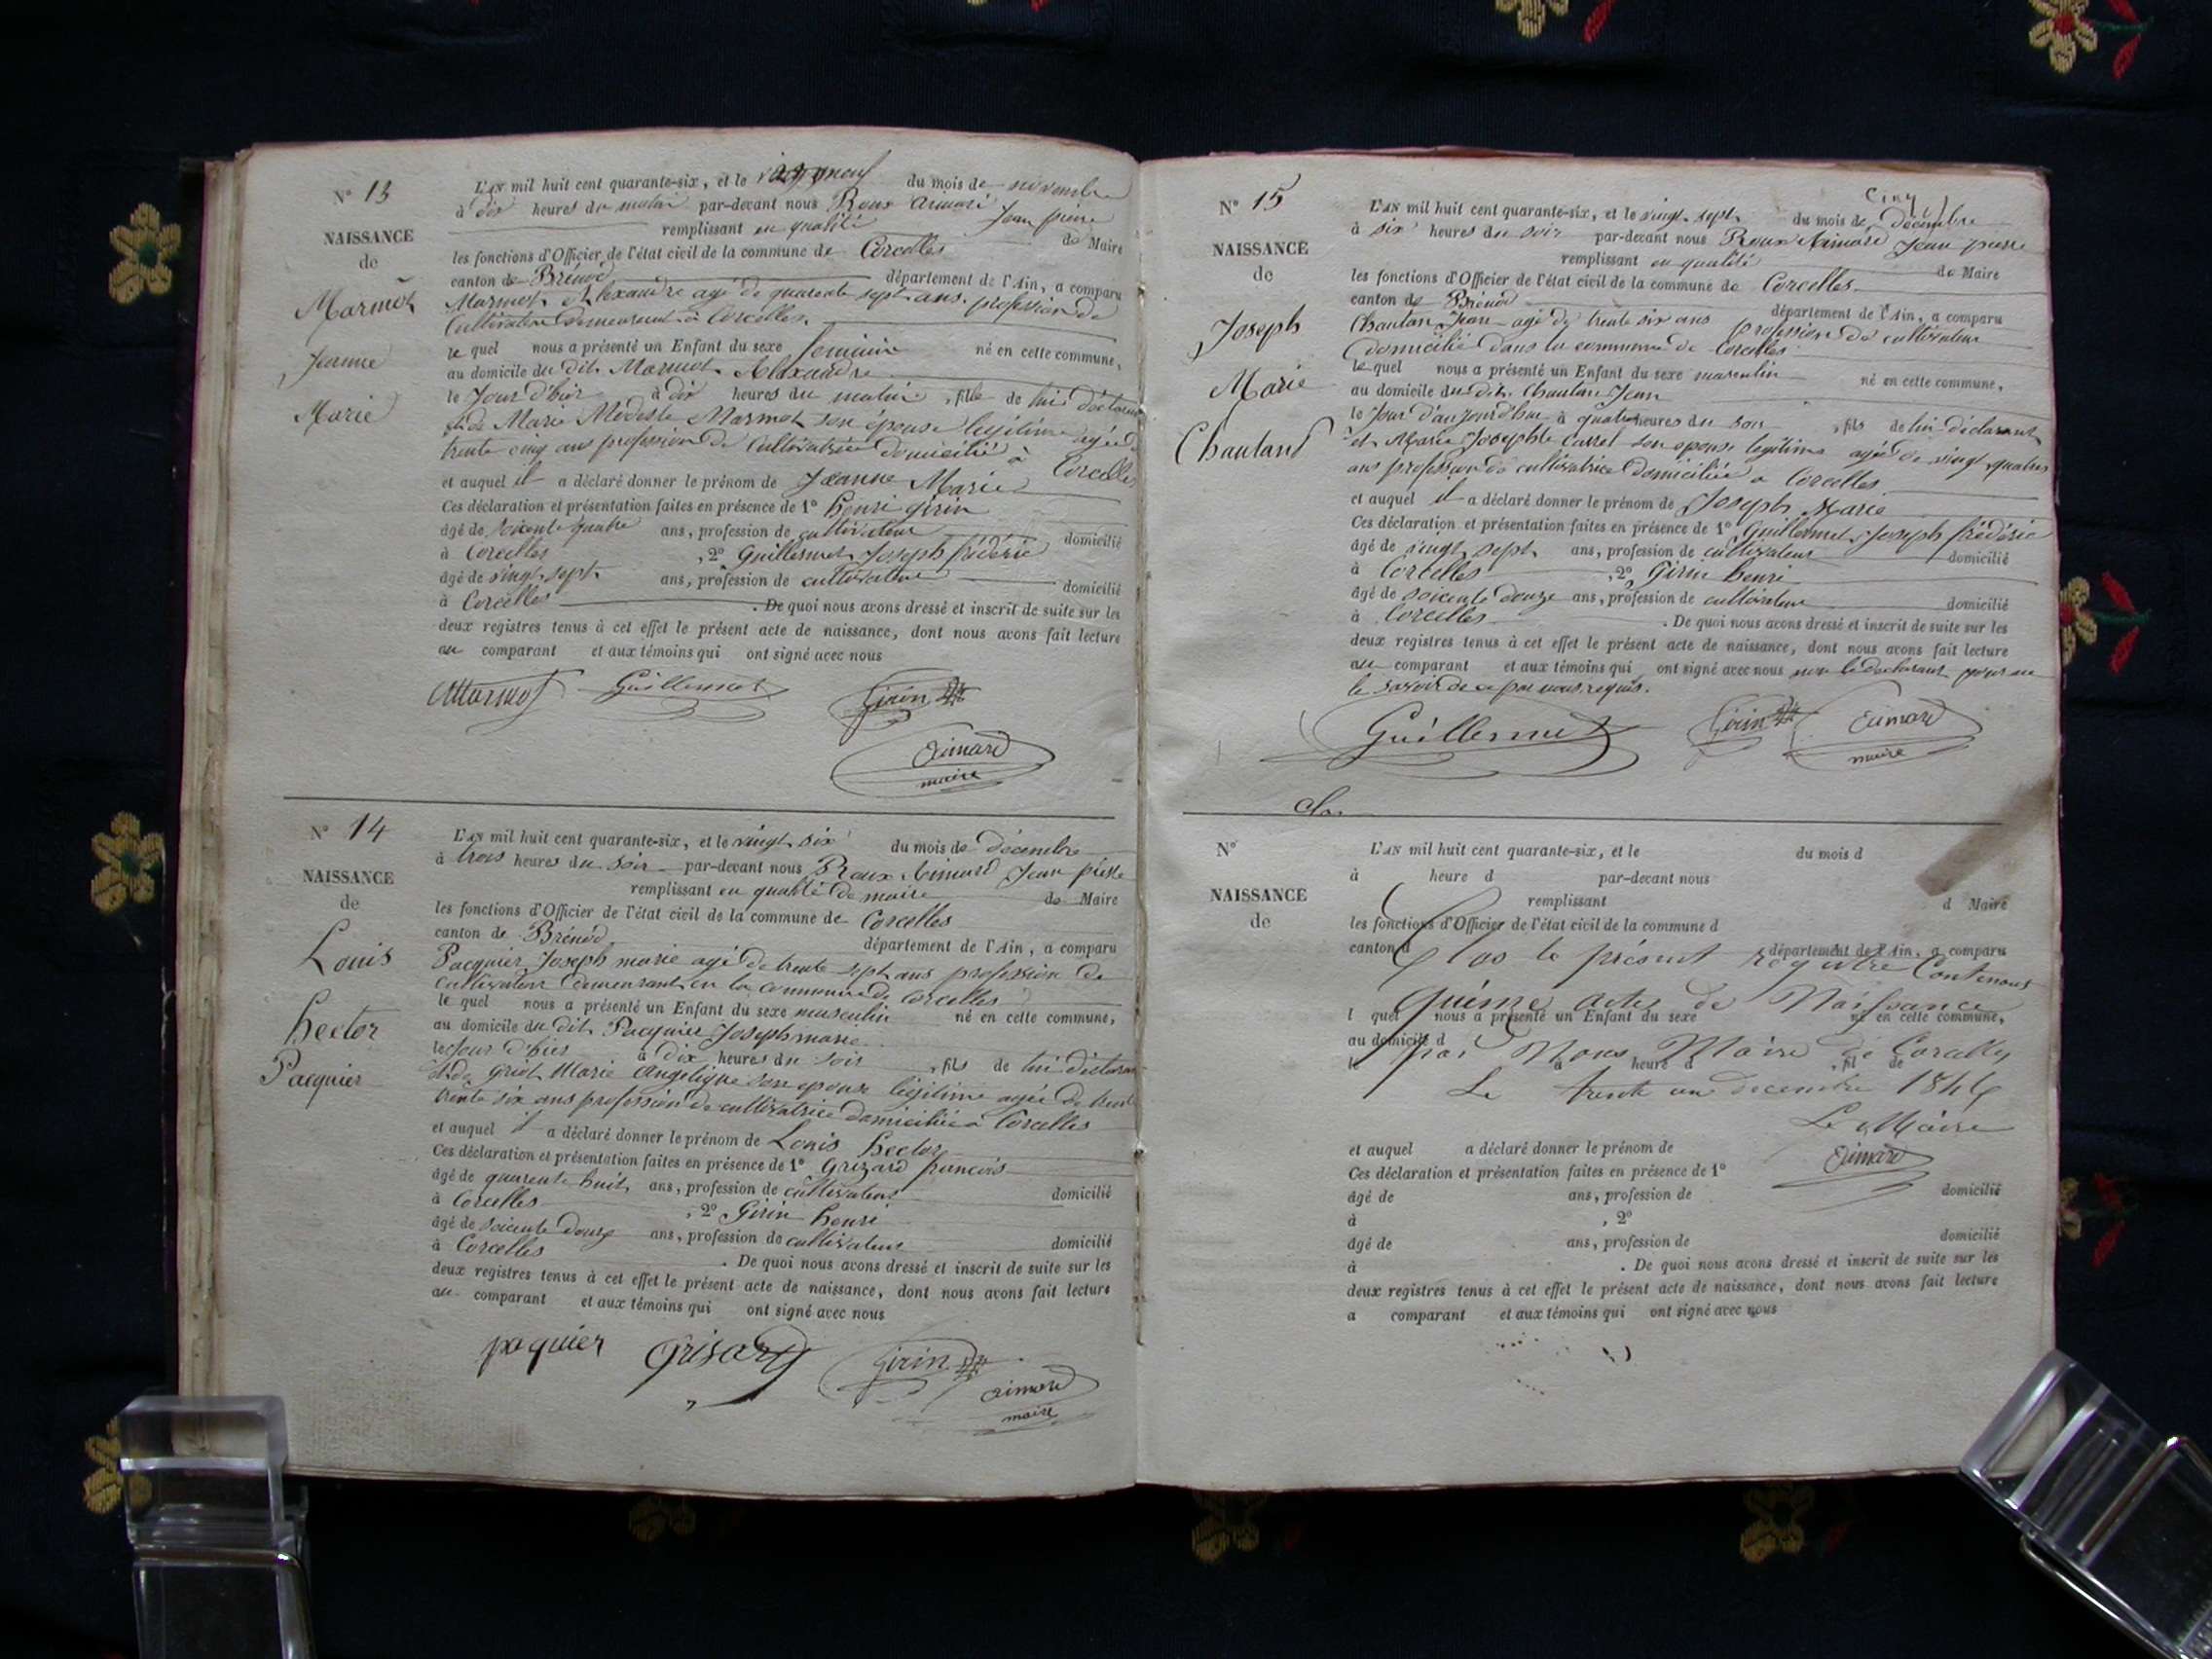 N° 13
NAISSANCE
de
Marmot
Jeanne
Marie
L'AN mil huit cent quarante-six, et le du mois de novembre
à dix heures du matin par-devant nous Roux Aimard Jean pierre
remplissant en qualité de Maire
les fonctions d'Officier de l'état civil de la commune de Corcelles
canton de Brénod département de l'Ain, a comparu
Marmot Alexandre agé de quarante sept ans profession de
Cultivateur demeurant à Corcelles
le quel nous a présenté un Enfant du sexe feminin né en cette commune,
au domicile du dit Marmot Alexandre
le Jour d'hier à dix heures du matin, fille de lui déclarant
et de Marie Modeste Marmot son épouse légitime agée de
trente cinq ans profession de Cultivatrice domicilié à Corcelles
et auquel il a déclaré donner le prénom de Jeanne Marie
Ces déclaration et présentation faites en présence de 1° henri girin
âgé de ans, profession de cultivateur domicilié
à Corcelles, 2° Guillermet Joseph frédéric
âgé de vingt sept ans, profession de cultivateur domicilié
à Corcelles. De quoi nous avons dressé et inscrit de suite sur les
deux registres tenus à cet effet le présent acte de naissance, dont nous avons fait lecture
au comparant et aux témoins qui ont signé avec nous
Marmot Guillermet Girin
aimard
maire
N° 14
NAISSANCE
de
Louis
hector
Pacquier
L'AN mil huit cent quarante-six, et le vingt six du mois de décembre
à trois heures du soir par-devant nous Roux Aimard Jean pierre
remplissant en qualité de maire de Maire
les fonctions d'Officier de l'état civil de la commune de Corcelles
canton de Brénod département de l'Ain, a comparu
Pacquier Joseph marie agé de trente sept ans profession de
cultivateur demeurant en la commune de Corcelles
le quel nous a présenté un Enfant du sexe masculin né en cette commune,
au domicile du dit Pacquier Joseph marie
le Jour d'hier à dix heures du soir, fils de lui déclarant
et de Griot Marie Angelique son epouse légitime agée de
trente six ans profession de cultivatrice domiciliée à Corcelles
et auquel il a déclaré donner le prénom de Louis hector
Ces déclaration et présentation faites en présence de 1° Grizard francois
âgé de quarente huit ans, profession de cultivateur domicilié
à Corcelles, 2° Girin henri
âgé de soicente douze ans, profession de cultivateur domicilié
à Corcelles. De quoi nous avons dressé et inscrit de suite sur les
deux registres tenus à cet effet le présent acte de naissance, dont nous avons fait lecture
au comparant et aux témoins qui ont signé avec nous
paquier Grisard Girin
aimard
maire
Cinq
N° 15
NAISSANCE
de
Joseph
Marie
Chautard
L'AN mil huit cent quarante-six, et le vingt sept du mois de décembre
à six heures du soir par-devant nous Roux Aimard Jean pierre
remplissant en qualité de Maire
les fonctions d'Officier de l'état civil de la commune de Corcelles
canton de Brénod département de l'Ain, a comparu
Chautan Jean agé de trente six ans profession de cultivateur
domicilié dans la commune de Corcelles
le quel nous a présenté un Enfant du sexe masculin né en cette commune,
au domicile du dit Chautan Jean
le Jour d'aujourd'hui à quatre heures du soir, fils de lui déclarant
et Marie Josephte Carrel son epouse légitime agée de vingt quatre
ans profession de cultivatrice domiciliée a Corcelles
et auquel il a déclaré donner le prénom de Joseph Marie
Ces déclaration et présentation faites en présence de 1° Guillermet Joseph frédéric
âgé de vingt sept ans, profession de cultivateur domicilié
à Corcelles, 2° Girin henri
âgé de soicente douze ans, profession de cultivateur domicilié
à Corcelles. De quoi nous avons dressé et inscrit de suite sur les
deux registres tenus à cet effet le présent acte de naissance, dont nous avons fait lecture
au comparant et aux témoins qui ont signé avec nous non le déclarant pour ne
le savoir de ce par nous requis.
Guillermet Girin aimard
maire
N°
NAISSANCE
de
L'AN mil huit cent quarante-six, et le du mois d
à heure d par-devant nous
remplissant d Maire
les fonctions d'Officier de l'état civil de la commune d
canton d département de l'Ain, a comparu
Clos le présent régistre Contenant
quinze actes de Naissance
l quel nous a présenté un Enfant du sexe né en cette commune,
au domicile d
par Nous Maire de Corcelles
le à heure d, fil de
Le trente un decembre 1846
Le Maire
aimard
et auquel a déclaré donner le prénom de
Ces déclaration et présentation faites en présence de 1°
âgé de ans, profession de domicilié
à, 2°
âgé de ans, profession de domicilié
à. De quoi nous avons dressé et inscrit de suite sur les
deux registres tenus à cet effet le présent acte de naissance, dont nous avons fait lecture
a comparant et aux témoins qui ont signé avec nous